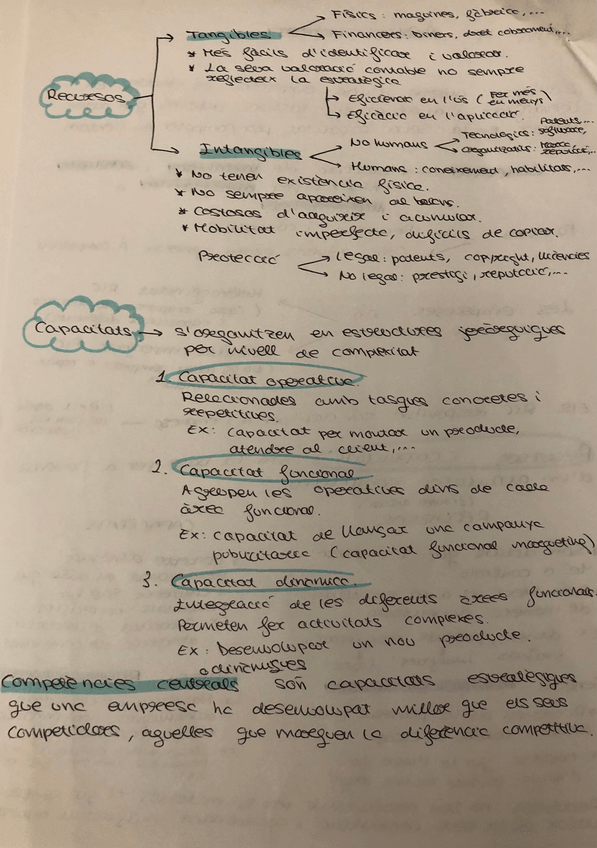 Físics: maquines, fàbrica,...
Tangibles
Financers: diners, dret cobrament,...
* Més fàcils d'identificar i valorar.
* La seva valoració contable no sempre
reflecteix la estratègica
Recursos
Eficiència en l'ús (Fer més en menys)
Eficàcia en l'aplicació.
Patents...
Tecnològics: software,
No humans
Intangibles
Organizatius: Marca, reputació,...
Humans: coneixement, habilitats,...
* No tenen existència física.
* No sempre apareixen al balanç.
* Costosos d'adquirir i acumular.
* Mobilitat imperfecte, difícils de copiar.
Protecció
Legal: patents, copyright, llicències
No legal: prestigi, reputació,...
Capacitats → s'organitzen en estructures jeràrquiques
per nivell de complexitat
1. Capacitat operativa.
Relacionades amb tasques concretes i
repetitives.
Ex: capacitat per montar un producte,
atendre al client,...
2. Capacitat funcional.
Agrupen les operatives dins de cada
àrea funcional.
Ex: capacitat de llançar una campanya
publicitaria (capacitat funcional màrqueting)
3. Capacitat dinàmica.
Integració de les diferents àrees funcionals.
Permeten fer activitats complexes.
Ex: Desenvolupar un nou producte.
o dinàmiques
Competències centrals són capacitats estratègiques
que una empresa ha desenvolupat millor que els seus
competidors, aquelles que marquen la diferència competitiva.